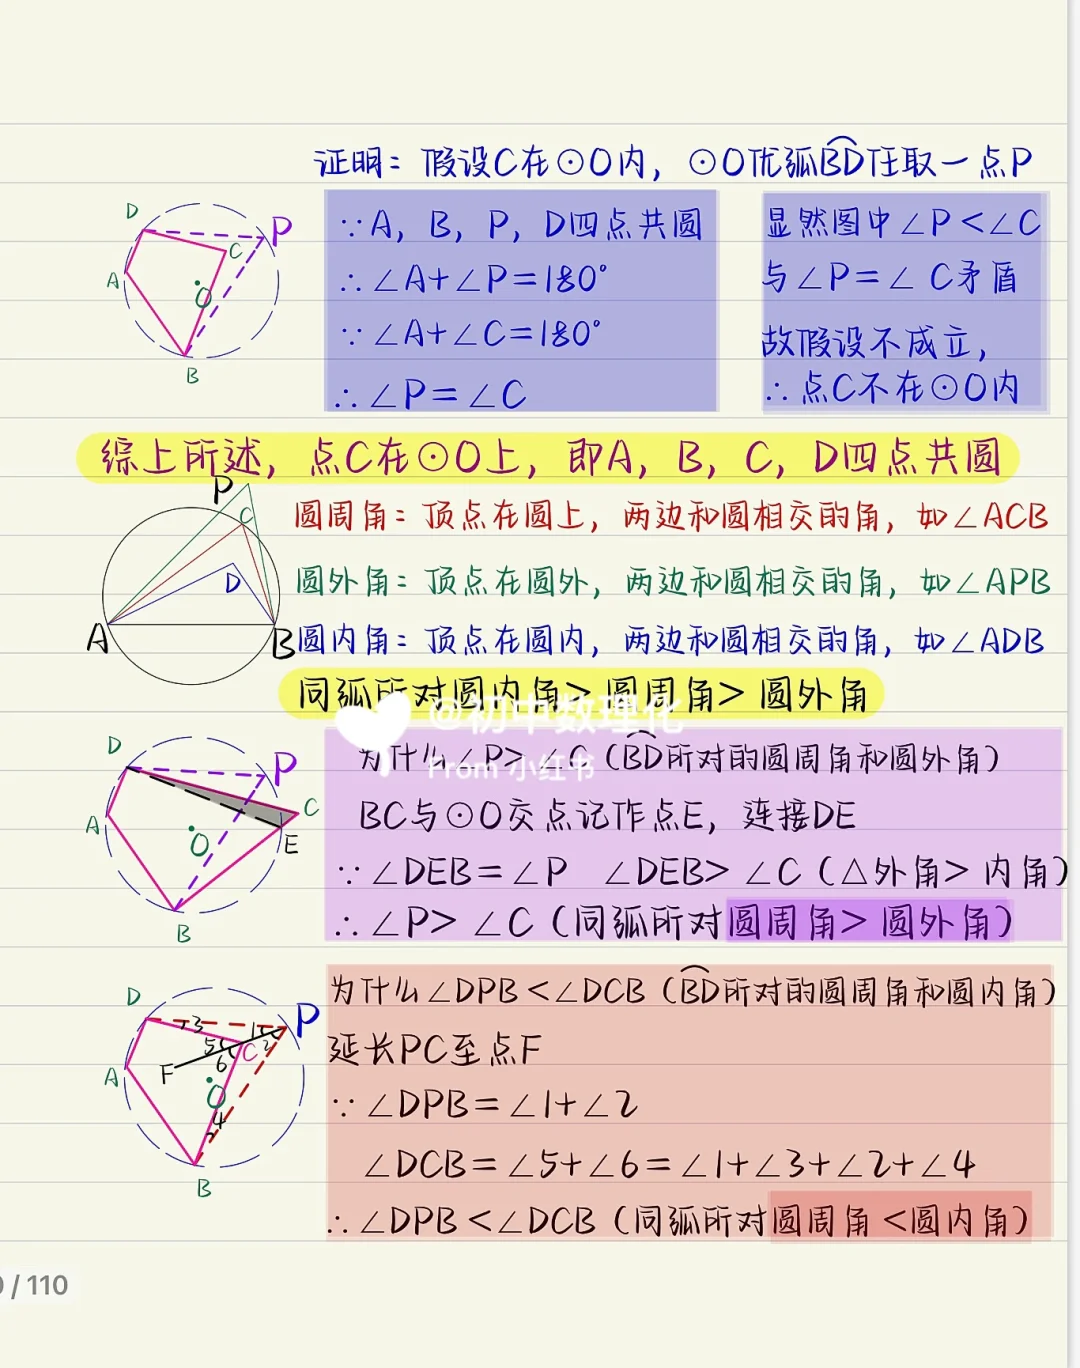 证明：假设C在⊙O内，⊙O优弧BD任取一点P
D
P
C
A
O
B
∵A，B，P，D四点共圆
∴∠A+∠P=180°
∵∠A+∠C=180°
∴∠P=∠C
显然图中∠P<∠C
与∠P=∠C矛盾
故假设不成立，
∴点C不在⊙O内
综上所述，点C在⊙O上，即A，B，C，D四点共圆
P
C
D
A
B
圆周角：顶点在圆上，两边和圆相交的角，如∠ACB
圆外角：顶点在圆外，两边和圆相交的角，如∠APB
圆内角：顶点在圆内，两边和圆相交的角，如∠ADB
同弧所对圆内角>圆周角>圆外角
@初中数理化
From 小红书
D
P
C
A
O
E
B
为什么∠P>∠C（BD所对的圆周角和圆外角）
BC与⊙O交点记作点E，连接DE
∵∠DEB=∠P ∠DEB>∠C（△外角>内角）
∴∠P>∠C（同弧所对圆周角>圆外角）
D
P
3
1
2
5
C
6
F
A
O
4
B
为什么∠DPB<∠DCB（BD所对的圆周角和圆内角）
延长PC至点F
∵∠DPB=∠1+∠2
∠DCB=∠5+∠6=∠1+∠3+∠2+∠4
∴∠DPB<∠DCB（同弧所对圆周角<圆内角）
/ 110